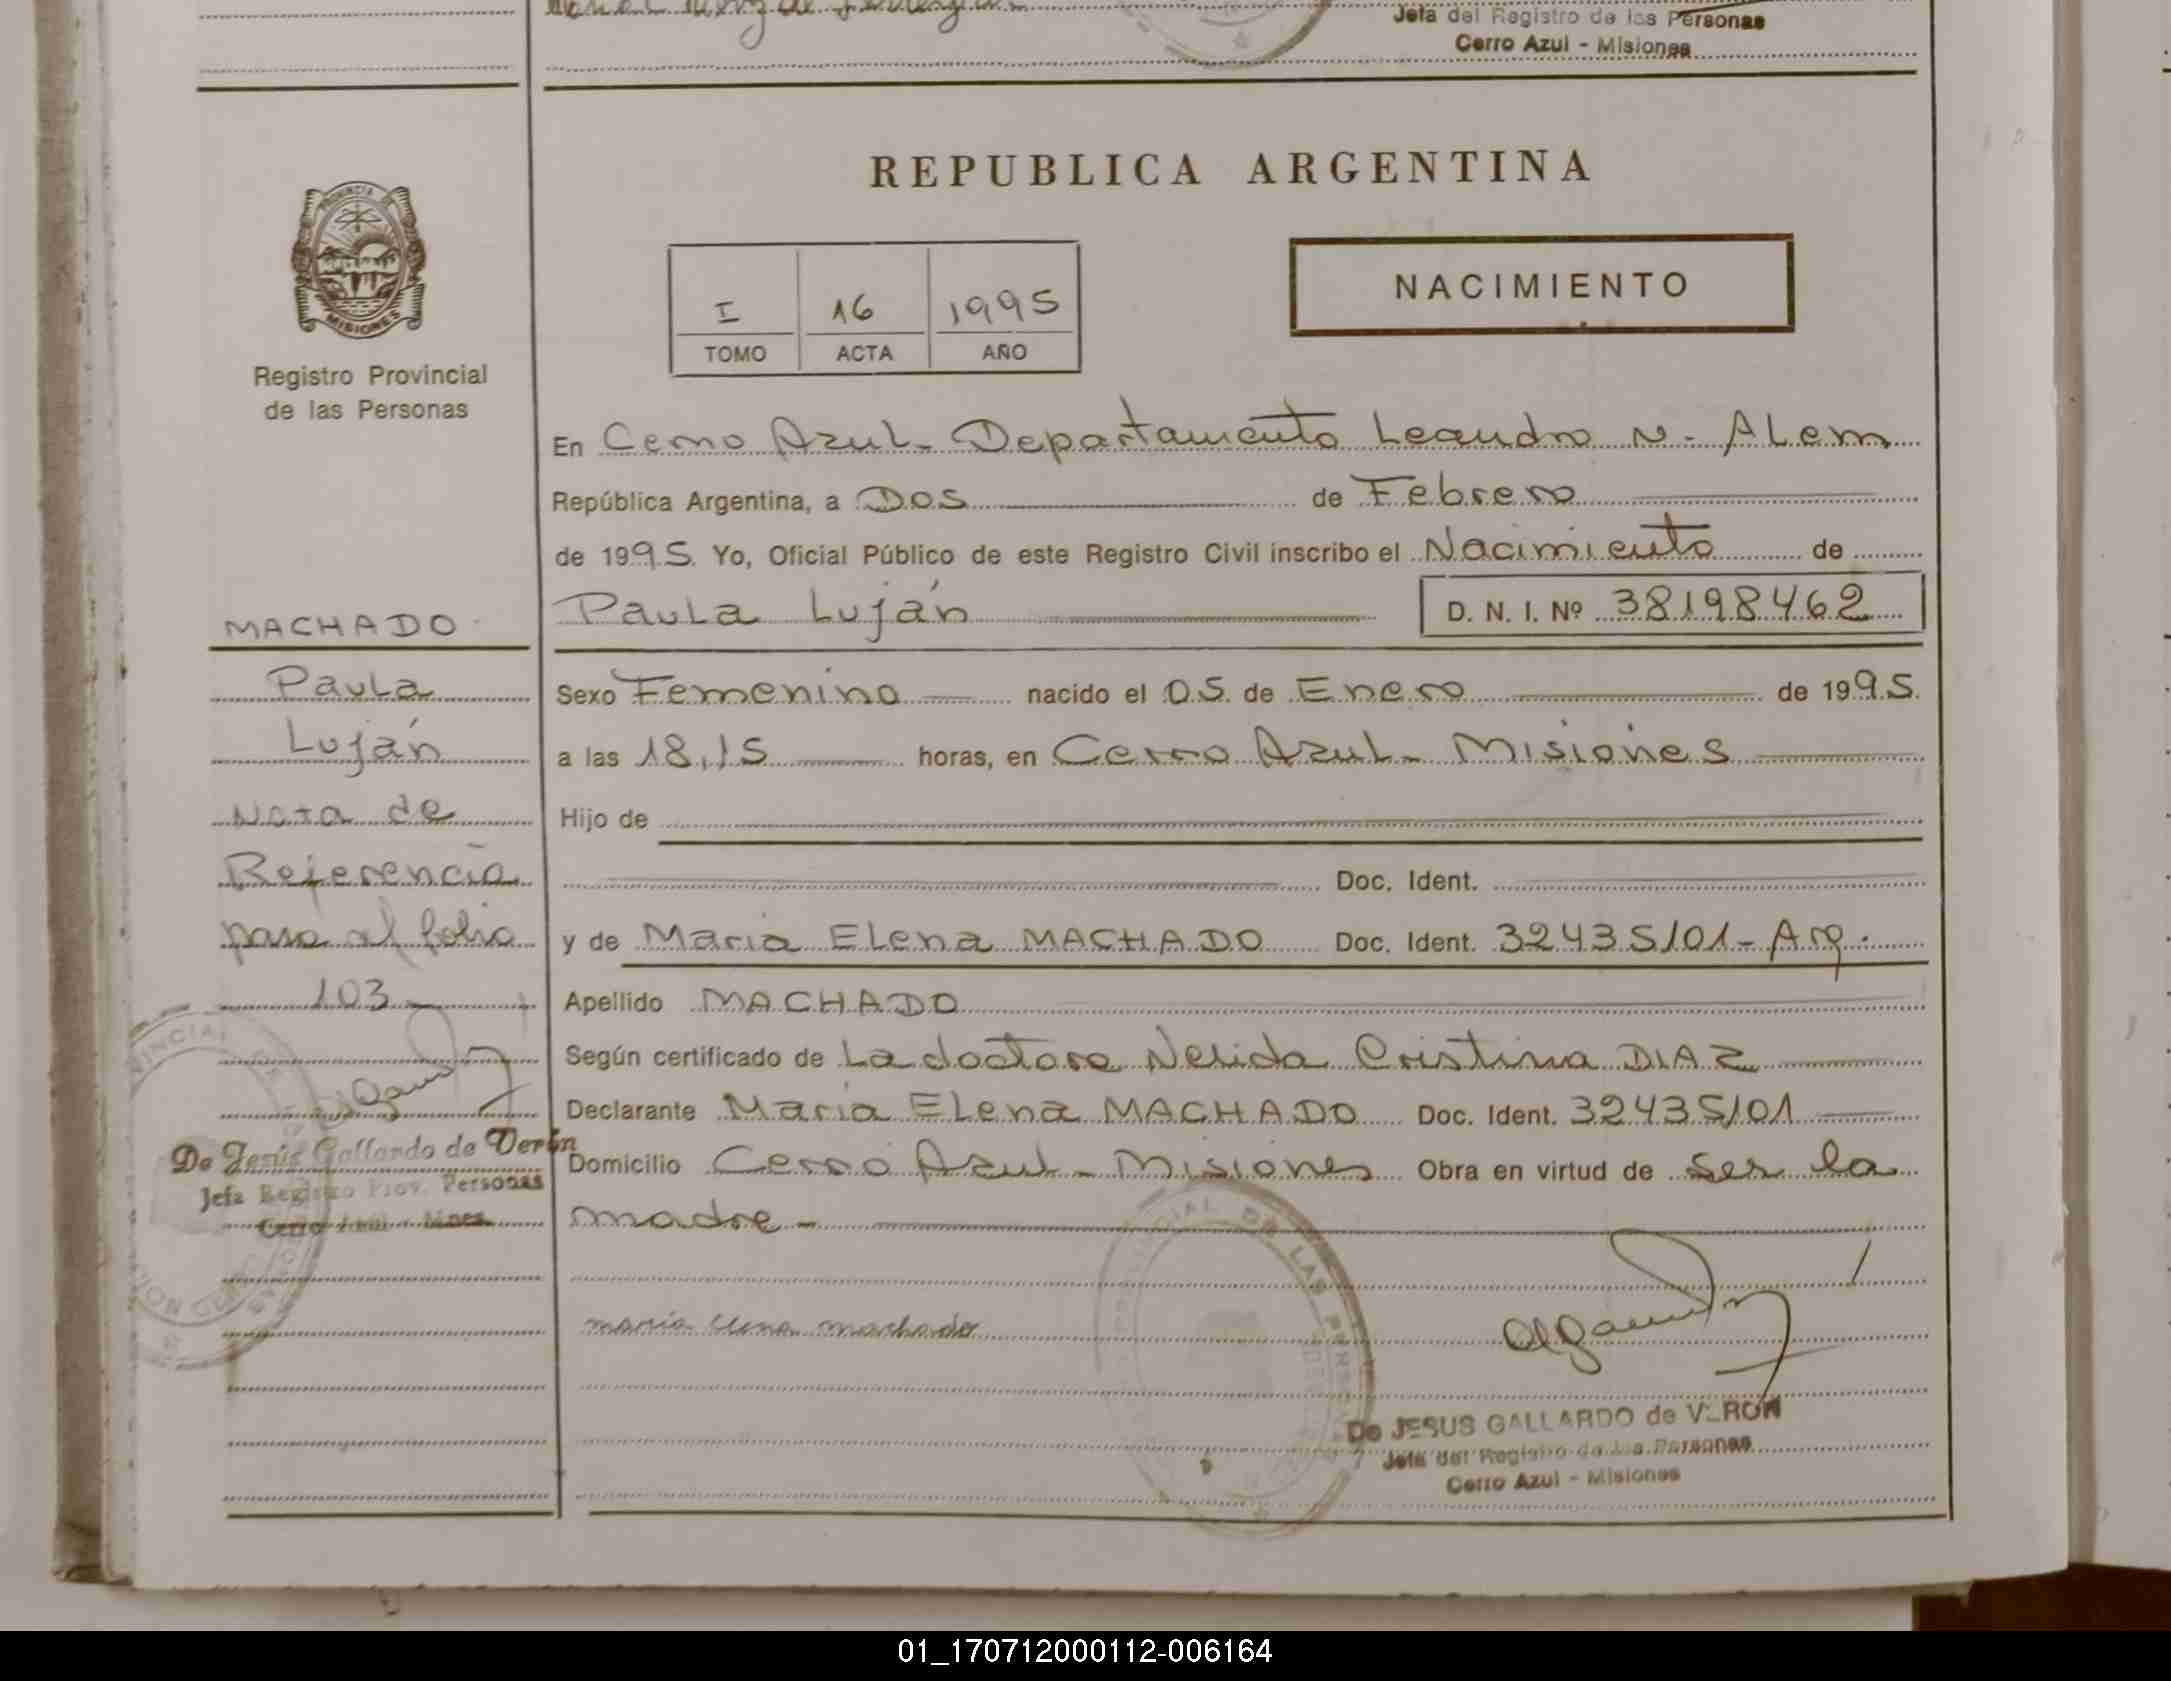 Jefa del Registro de las Personas
Cerro Azul - Misiones
REPUBLICA ARGENTINA
PROVINCIA DE
MISIONES
Registro Provincial
de las Personas
I 16 1995
TOMO ACTA AÑO
NACIMIENTO
En Cerro Azul - Departamento Leandro N - ALem
República Argentina, a Dos de Febrero
de 1995. Yo, Oficial Público de este Registro Civil inscribo el Nacimiento de
Paula Luján D. N. I. Nº 38198462
MACHADO
Paula
Luján
Nota de
Referencia
pasa al folio
103
De Jesús Gallardo de Verón
Jefa Registro Prov. Personas
Cerro Azul - Mnes.
Sexo Femenino nacido el 05 de Enero de 1995.
a las 18,15 horas, en Cerro Azul - Misiones
Hijo de
Doc. Ident.
y de María Elena MACHADO Doc. Ident. 32435101 - Arg.
Apellido MACHADO
Según certificado de La doctora Nelida Cristina DIAZ
Declarante María Elena MACHADO Doc. Ident. 32435101
Domicilio Cerro Azul - Misiones Obra en virtud de ser la
madre -
maria elena machado
DE LAS
De JESUS GALLARDO de VERON
Jefa del Registro de las Personas
Cerro Azul - Misiones
01_170712000112-006164